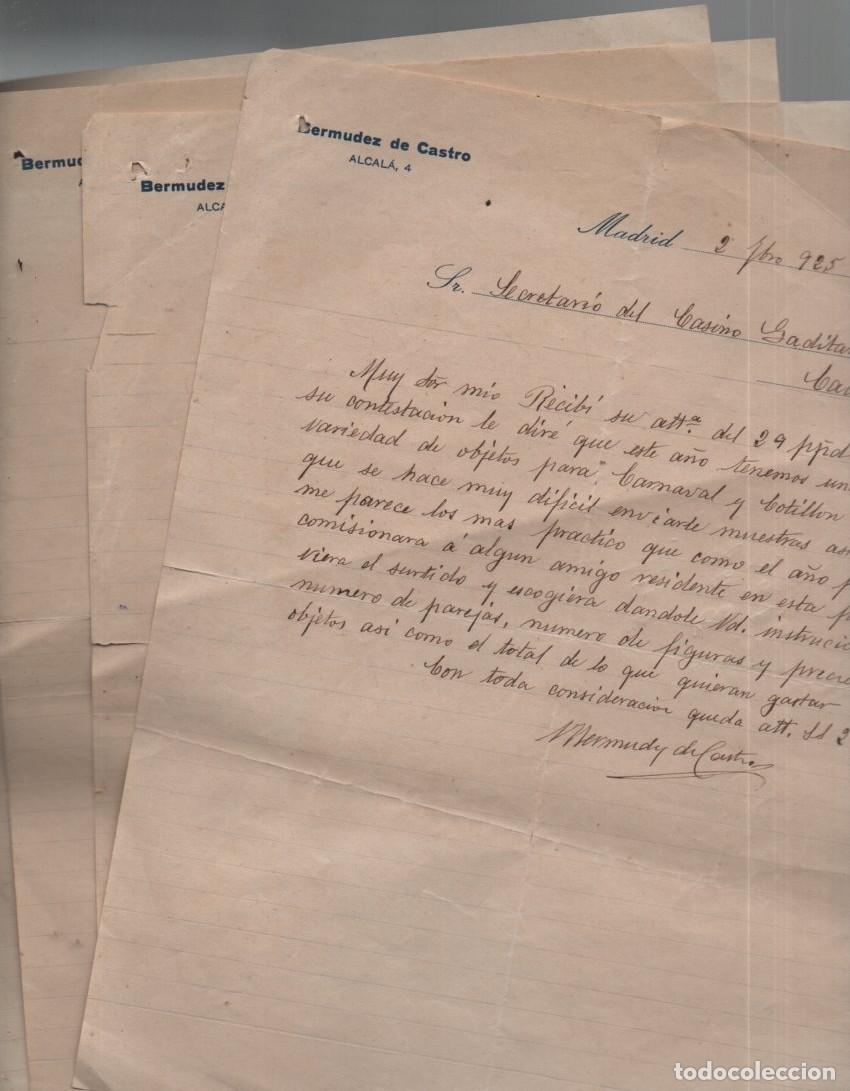 Bermudez de Castro
ALCALÁ, 4
Bermud
Bermudez
ALCA
Madrid 2 fbro 925
Sr. Secretario del Casino Gadita
Muy Sor mio Recibí su attª del 29 ppd
su contestación le diré que este año tenemos un
variedad de objetos para Carnaval y Cotillon
que se hace muy dificil enviarle muestras as
me parece los mas practico que como el año p
comisionara á algun amigo residente en esta p
viera el surtido y escogiera dandole Vd. instrucci
numero de parejas, numero de figuras y preci
objetos asi como el total de lo que quieran gastar
Con toda consideracion queda att. SS 2
Bermudez de Castro
todocoleccion